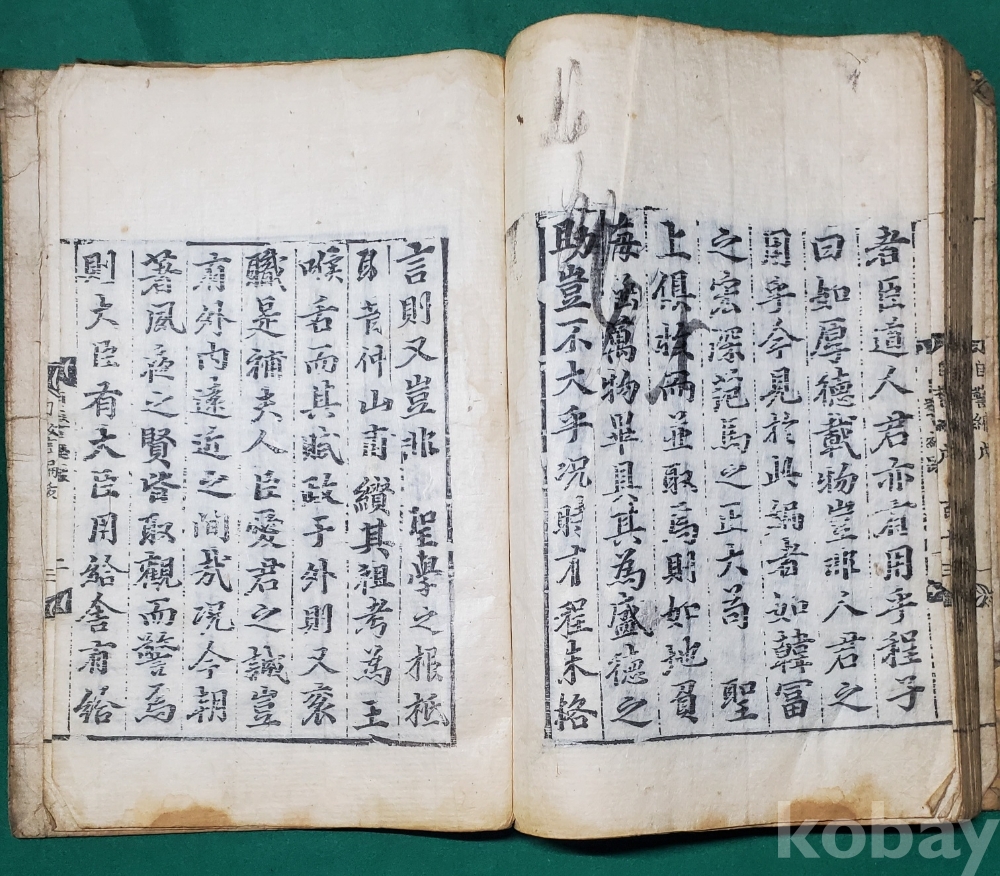 者臣道人君亦有用乎程子
曰如厚德載物豈非人君之
用乎今見於此編者如韓富
之宏深范馬之正大苟 聖
上俱 而並取焉則如地負
海 萬物畢具其為盛德之
助豈不大乎况時有程朱格
言則又豈非 聖學之根柢
耶昔仲山甫纘其祖考為王
喉舌而其賦政于外則又袞
職是補夫人臣愛君之誠豈
有外內遠近之間哉况今朝
著夙夜之賢皆取觀而警焉
則大臣有大臣用給舍有給
kobay